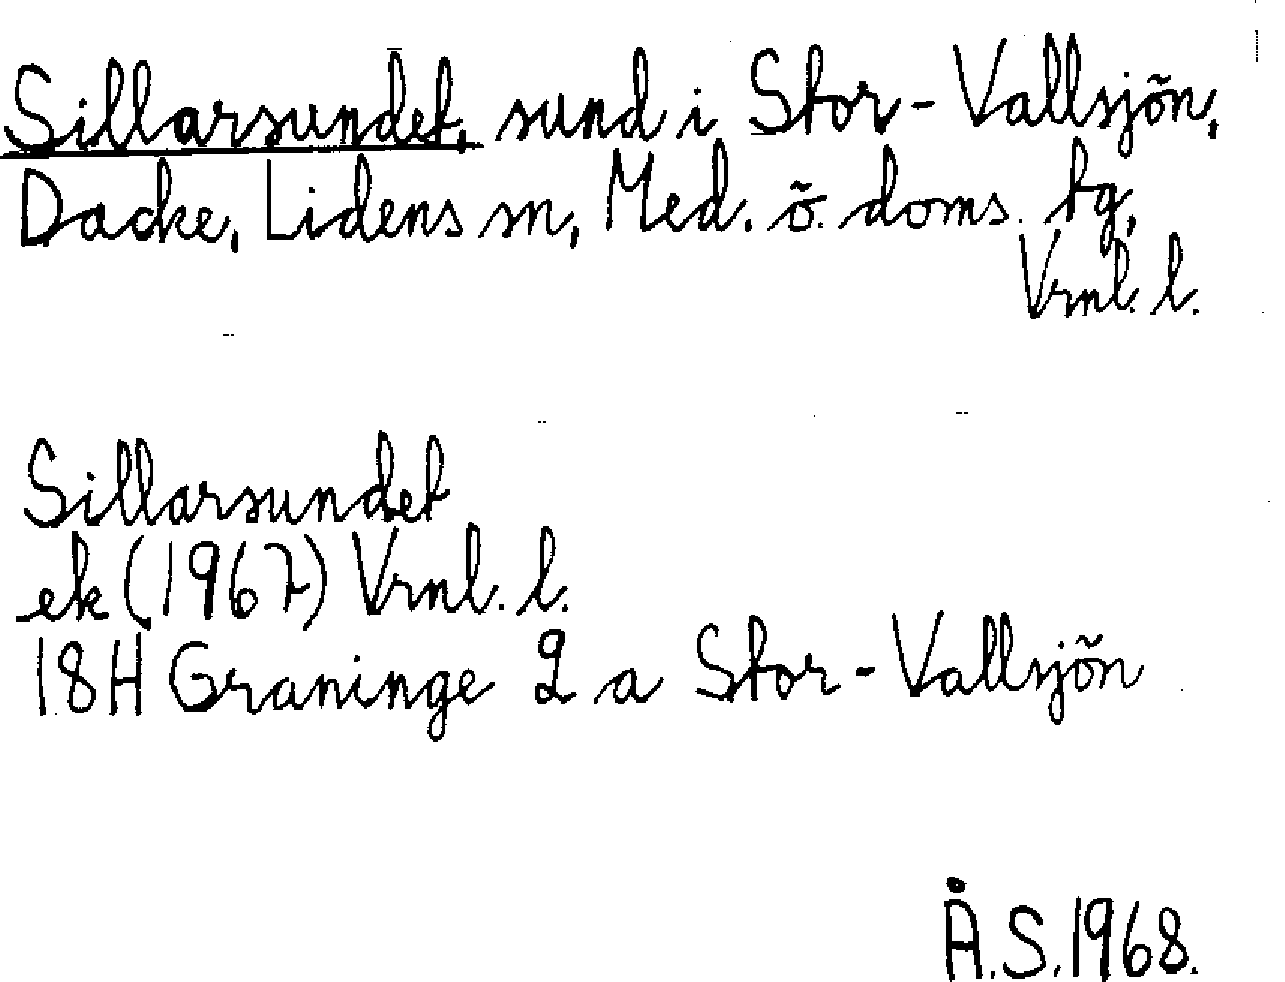 Sillarsundet, sund i Stor-Vallsjön,
Dacke, Lidens sn, Med. ö. doms. tg,
Vrnl. l.
Sillarsundet
ek (1967) Vrnl. l.
18H Graninge 2 a Stor-Vallsjön
Å.S.1968.